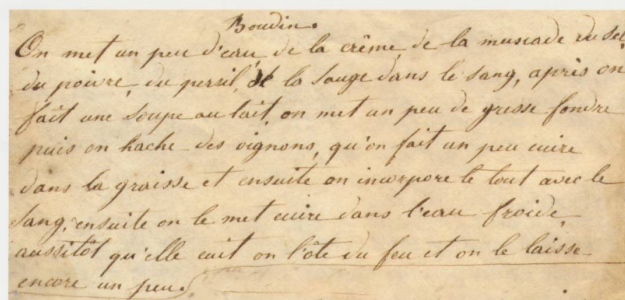 Boudin.
On met un peu d'eau, de la crême, de la muscade du sel
du poivre, du persil, de la sauge dans le sang, après on
fait une soupe au lait, on met un peu de gresse fondre
puis on hache des oignons, qu'on fait un peu cuire
dans la graisse et ensuite on incorpore le tout avec le
sang, ensuite on le met cuire dans l'eau froide,
aussitôt qu'elle cuit on l'ôte du feu et on le laisse
encore un peu.